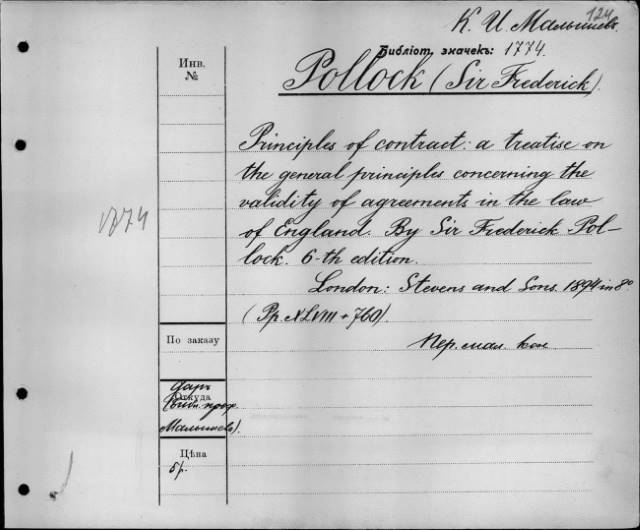 124
К. И. Малышевъ
Библіот. значекъ: 1774.
Инв.
№
Pollock (Sir Frederick).
Principles of contract: a treatise on
the general principles concerning the
validity of agreements in the law
of England. By Sir Frederick Pol-
lock. 6-th edition.
1774
London: Stevens and Sons. 1894 in 8°
(Pp. XLVIII + 760).
По заказу
Пер. мал. кол
Даръ
Откуда
проф.
Малышева).
Цѣна
5 р.